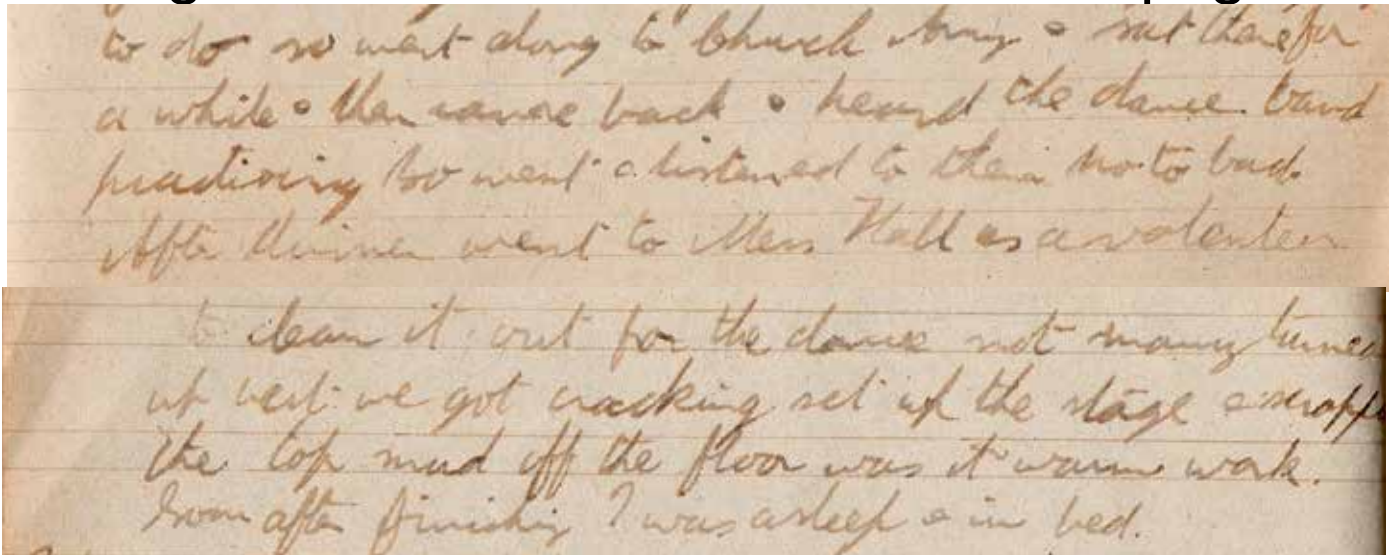 to do so went along to Church Army & sat there for
a while & then came back & heard the dance band
practising so went & listened to them no to bad.
After dinner went to Mess Hall as a volenteer
to clean it out for the dance not many turned
up but we got cracking set up the stage & scrapped
the top mud off the floor was it warm work.
Soon after finishing I was asleep & in bed.